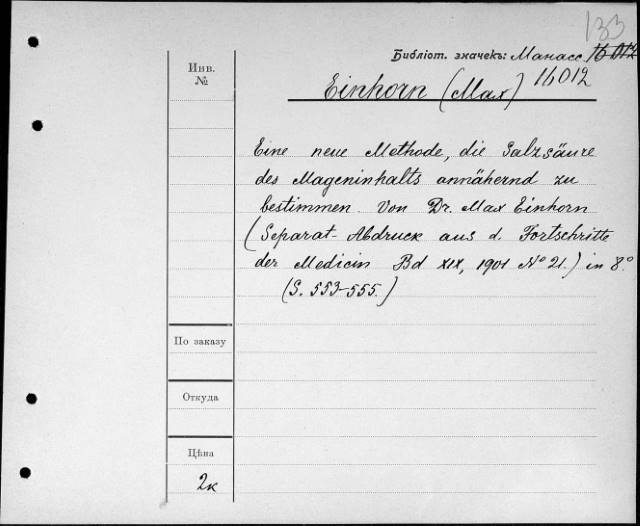 133
Библіот. значекъ: Манасс. 16 012
16012
Инв.
№
Einhorn (Max)
Eine neue Methode, die Salzsäure
des Mageninhalts annähernd zu
bestimmen. Von Dr. Max Einhorn
(Separat-Abdruck aus d. Fortschritte
der Medicin Bd XIX, 1901 No 21.) in 8.°
(S. 553-555.)
По заказу
Откуда
Цѣна
2к